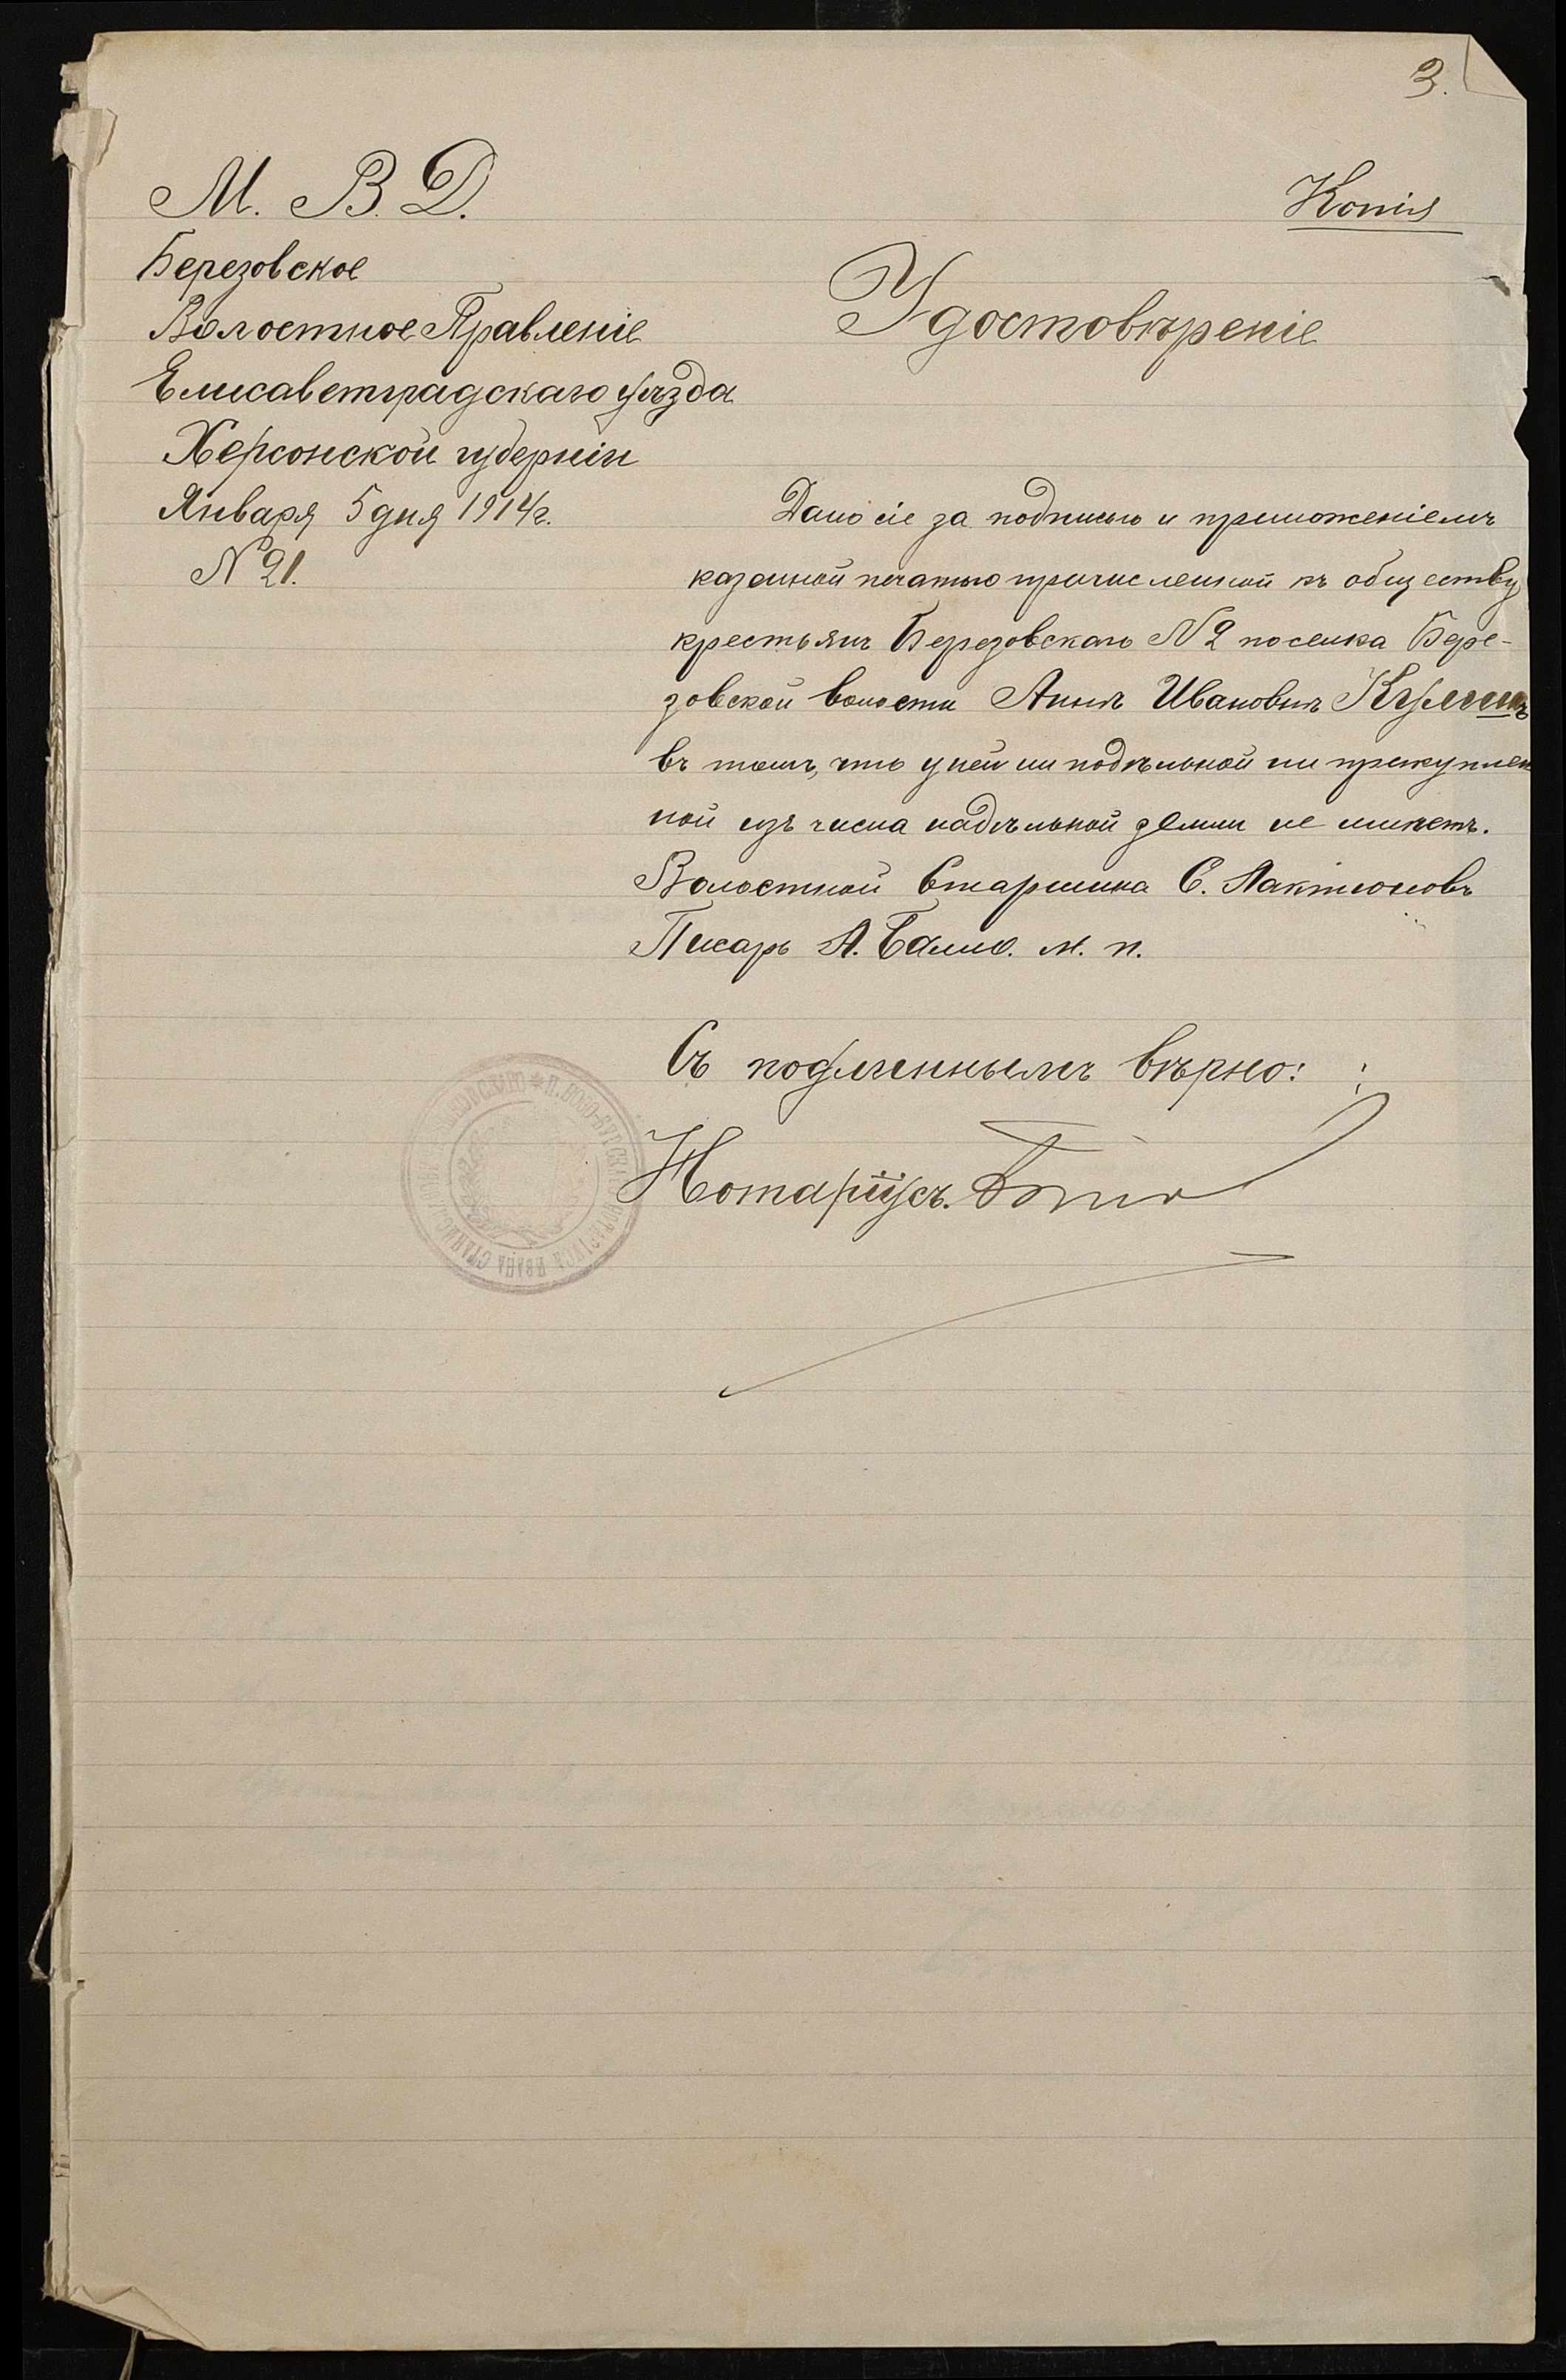 3.
М. В. Д.
Копія
Березовское
Волостное Правленіе
Удостовѣреніе
Елисаветградскаго уѣзда
Херсонской губерніи
Января 5 дня 1914 г.
N 21.
Дано сіе за подписью и приложеніемъ
казенной печатью причисленной къ обществу
крестьянъ Березовскаго N 2 поселка Бере-
зовской волости Аннѣ Ивановнѣ
въ томъ, что у ней ни подѣльной ни прикуплен
ной изъ числа надѣльной земли не имѣетъ.
Волостной Старшина С. Лактіоновъ
Писарь А. м. п.
Съ подлиннымъ вѣрно:
Нотаріусъ.